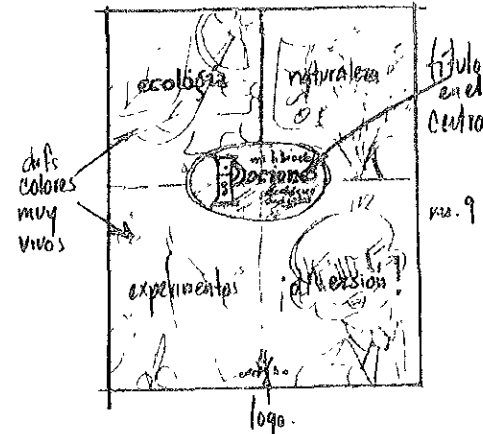 ecología
naturaleza
título
en el
Centro
difs
colores
muy
vivos
mi libro de
no. 9
experimentos
¡diversión!
logo.